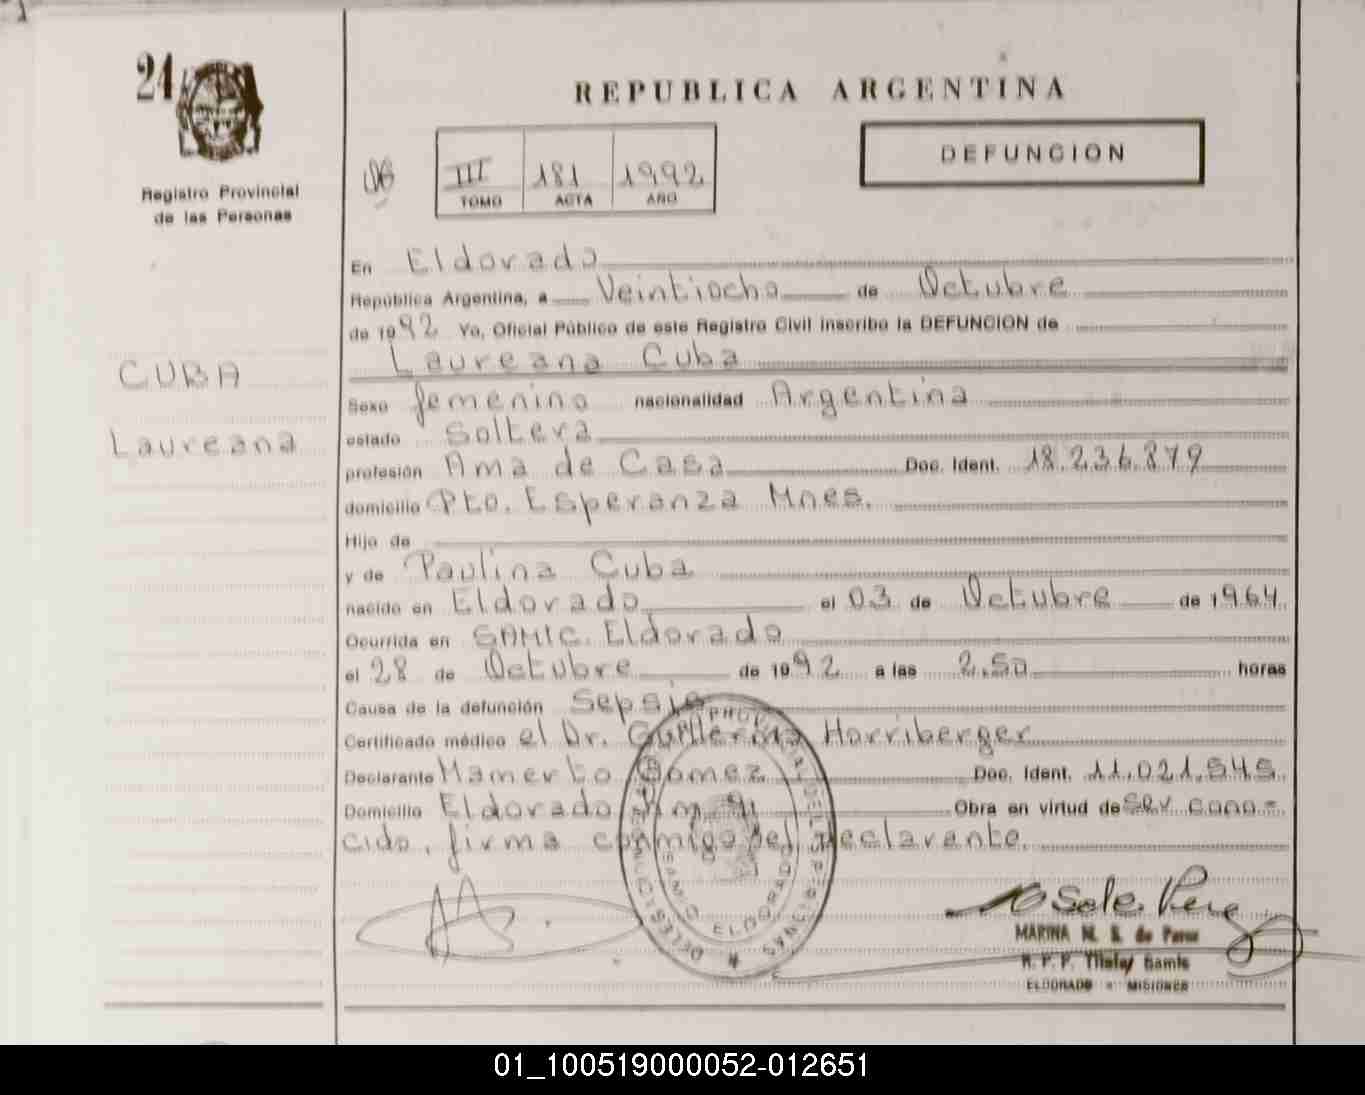 24
Registro Provincial
de las Personas
REPUBLICA ARGENTINA
DEFUNCION
III 181 1992
TOMO ACTA AÑO
En Eldorado
República Argentina, a Veintiocho de Octubre
de 1992 Yo, Oficial Público de este Registro Civil inscribo la DEFUNCION de
Laureana Cuba
CUBA
Laureana
Sexo femenino nacionalidad Argentina
estado Soltera
profesión Ama de Casa Doc. Ident. 18.236.879
domicilio Pto. Esperanza Mnes.
Hijo de
y de Paulina Cuba
nacido en Eldorado el 03 de Octubre de 1964
Ocurrida en SAMIC. Eldorado
el 28 de Octubre de 1992 a las 2,50 horas
Causa de la defunción Sepsis
Certificado médico el Dr. Guillermo Harriberger
Declarante Mamerto Gomez Doc. Ident. 11.021.545
Domicilio Eldorado Km 9 Obra en virtud de Ser cono=
cido, firma conmigo el declarante.
MARINA M. S. de Perez
R. P. P. Titular Samic
ELDORADO - MISIONES
01_100519000052-012651